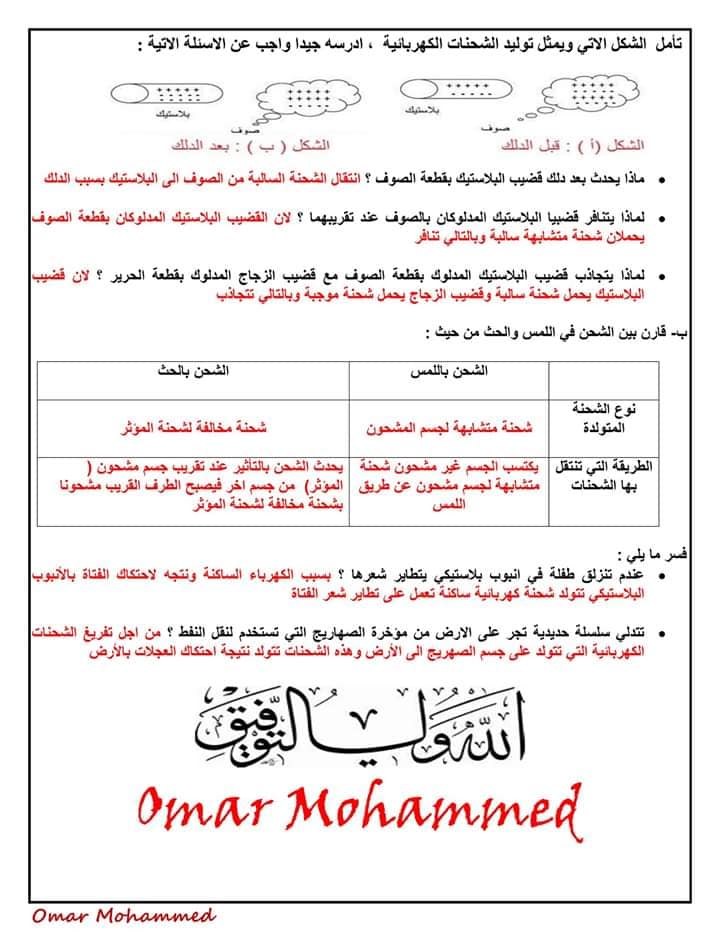 تأمل الشكل الاتي ويمثل توليد الشحنات الكهربائية ، ادرسه جيدا واجب عن الاسئلة الاتية :
بلاستيك
صوف
بلاستيك
صوف
الشكل (أ) : قبل الدلك
الشكل ( ب ) : بعد الدلك
ماذا يحدث بعد دلك قضيب البلاستيك بقطعة الصوف ؟ انتقال الشحنة السالبة من الصوف الى البلاستيك بسبب الدلك
لماذا يتنافر قضبيا البلاستيك المدلوكان بالصوف عند تقريبهما ؟ لان القضيب البلاستيك المدلوكان بقطعة الصوف
يحملان شحنة متشابهة سالبة وبالتالي تنافر
لماذا يتجاذب قضيب البلاستيك المدلوك بقطعة الصوف مع قضيب الزجاج المدلوك بقطعة الحرير ؟ لان قضيب
البلاستيك يحمل شحنة سالبة وقضيب الزجاج يحمل شحنة موجبة وبالتالي تتجاذب
ب- قارن بين الشحن في اللمس والحث من حيث :
الشحن باللمس
الشحن بالحث
نوع الشحنة
المتولدة
شحنة متشابهة لجسم المشحون
شحنة مخالفة لشحنة المؤثر
الطريقة التي تنتقل
بها الشحنات
يكتسب الجسم غير مشحون شحنة
متشابهة لجسم مشحون عن طريق
اللمس
يحدث الشحن بالتأثير عند تقريب جسم مشحون (
المؤثر) من جسم اخر فيصبح الطرف القريب مشحونا
بشحنة مخالفة لشحنة المؤثر
فسر ما يلي :
عندم تنزلق طفلة في انبوب بلاستيكي يتطاير شعرها ؟ بسبب الكهرباء الساكنة ونتجه لاحتكاك الفتاة بالأنبوب
البلاستيكي تتولد شحنة كهربائية ساكنة تعمل على تطاير شعر الفتاة
تتدلي سلسلة حديدية تجر على الارض من مؤخرة الصهاريج التي تستخدم لنقل النفط ؟ من اجل تفريغ الشحنات
الكهربائية التي تتولد على جسم الصهريج الى الأرض وهذه الشحنات تتولد نتيجة احتكاك العجلات بالأرض
الله ولي التوفيق
Omar Mohammed
Omar Mohammed